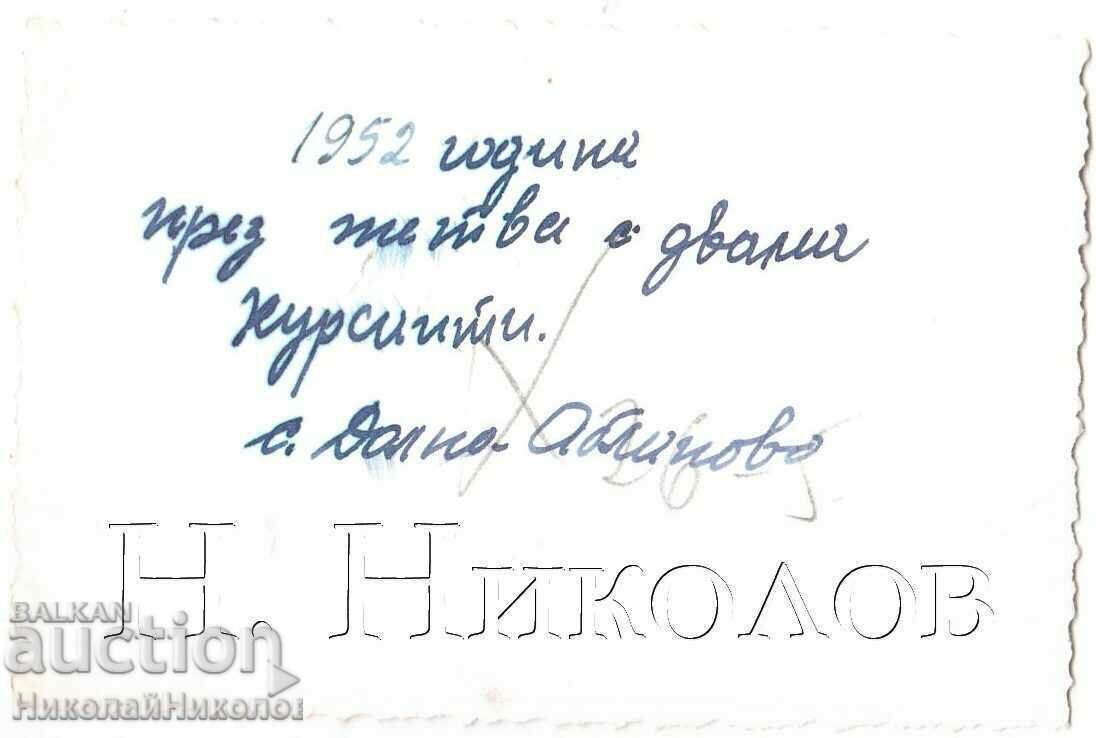 1952 година
през жетва с двама
Курсанти.
с. Долно Абланово
Н. Николов
BALKAN
auction
НиколайНиколов